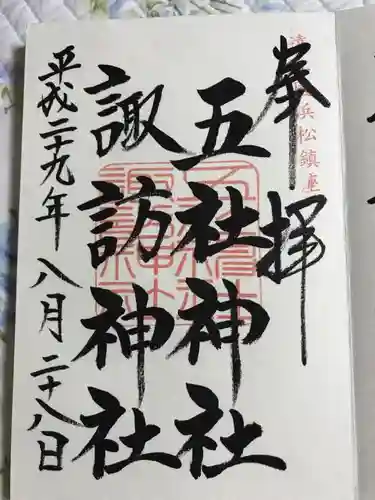 奉拝
遠 浜松鎮座
五社神社
諏訪神社
平成二十九年八月二十八日